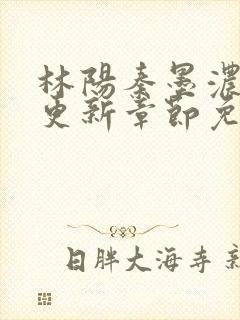 林陽秦墨濃
更新章節免
日胖大海寺新